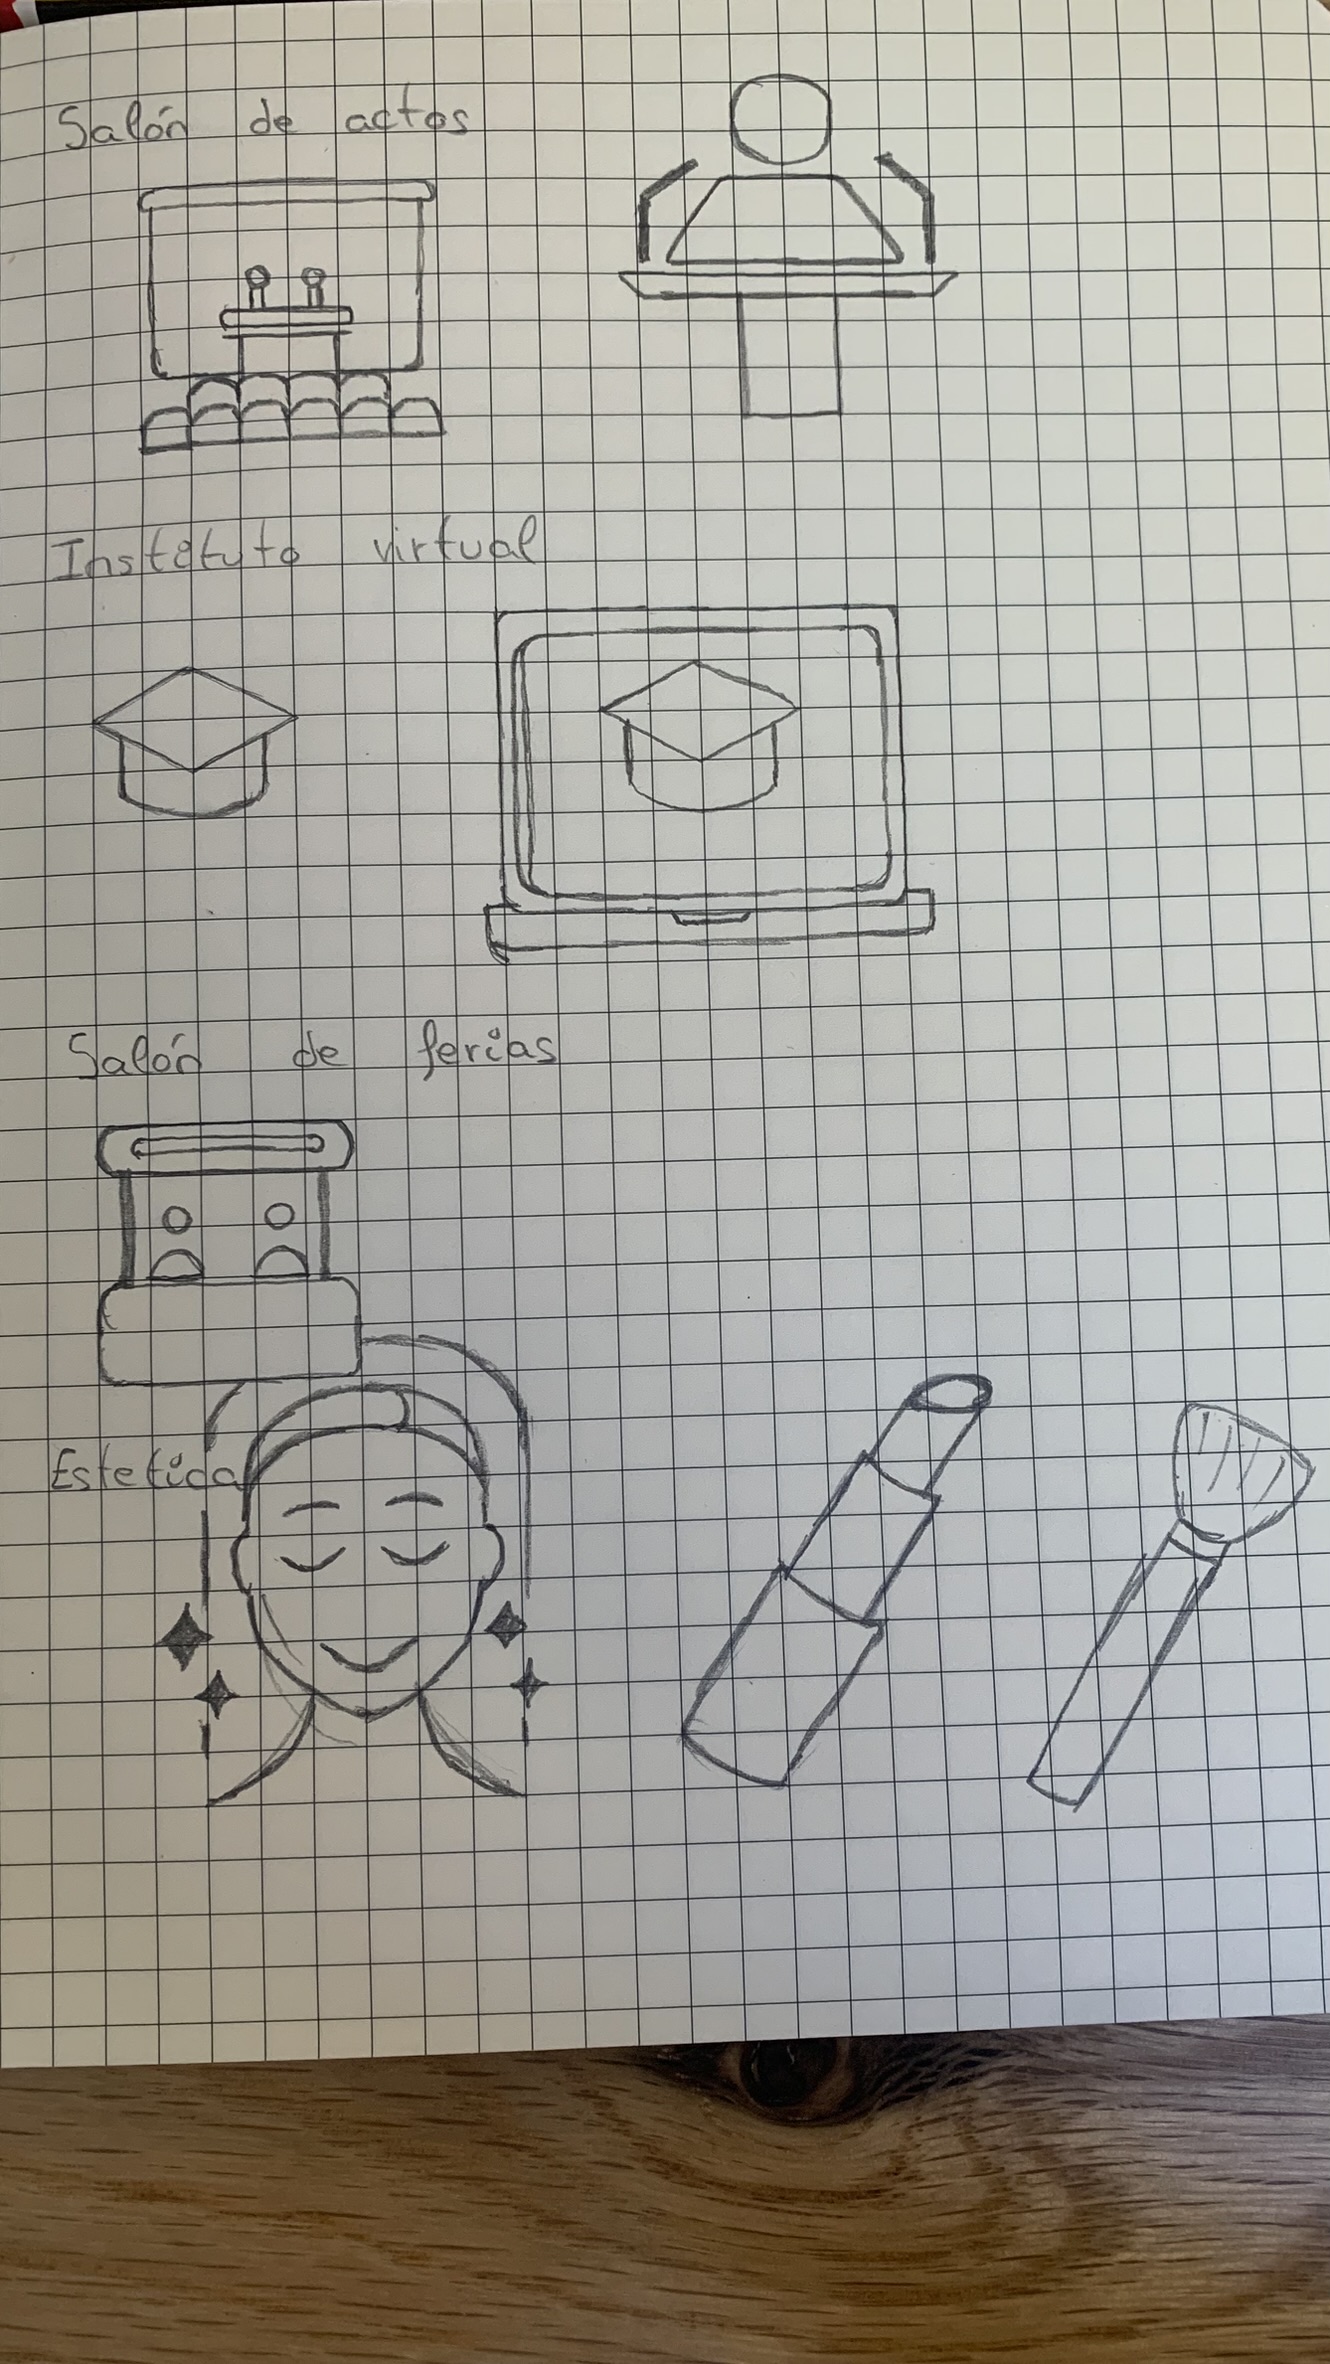 Salón de actos
Instituto virtual
Salón de ferias
Estetica